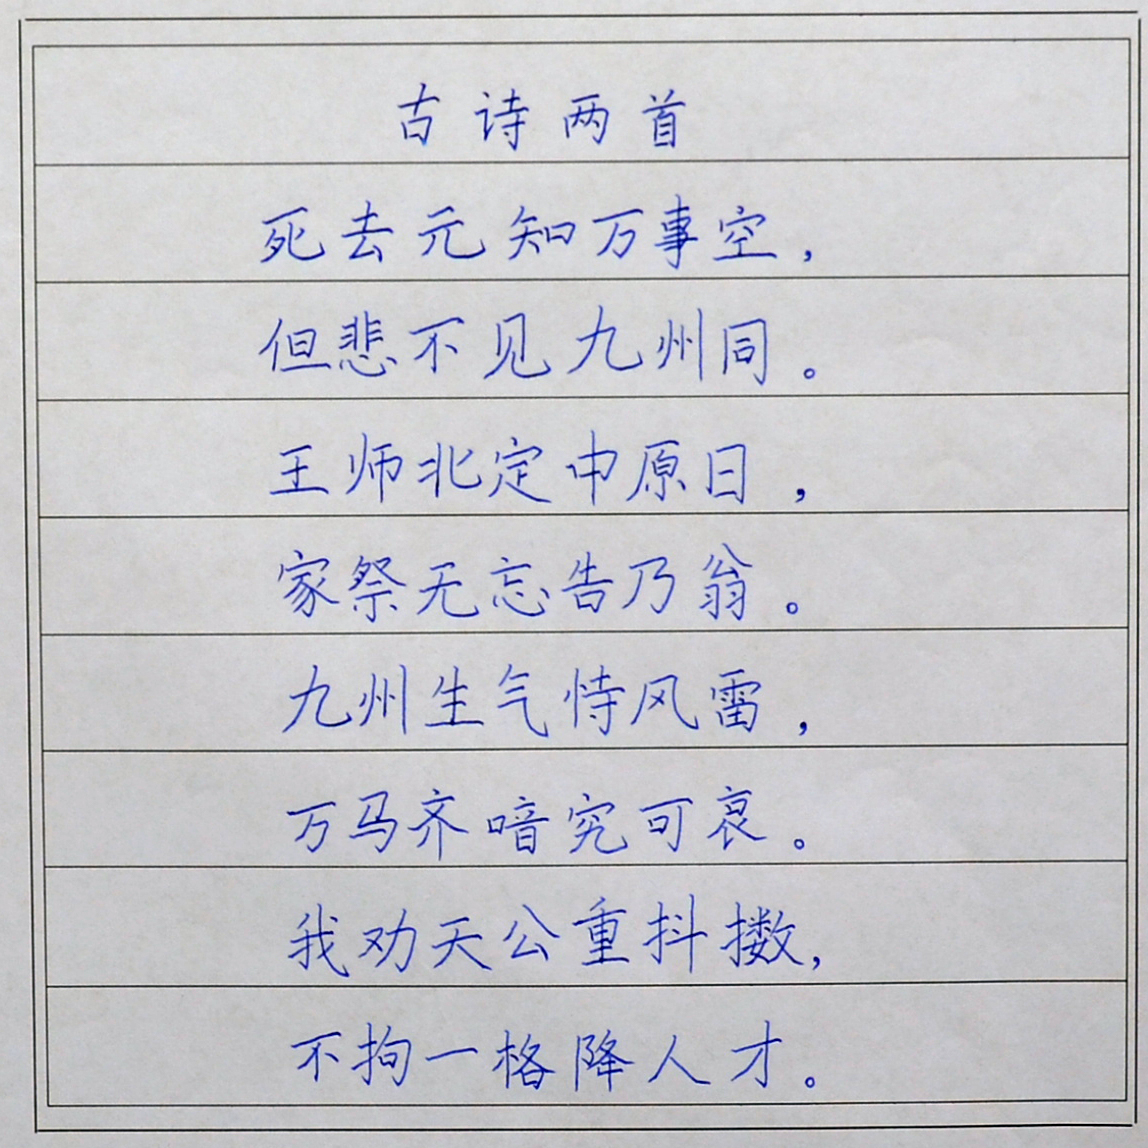 古诗两首
死去元知万事空，
但悲不见九州同。
王师北定中原日，
家祭无忘告乃翁。
九州生气恃风雷，
万马齐喑究可哀。
我劝天公重抖擞，
不拘一格降人才。